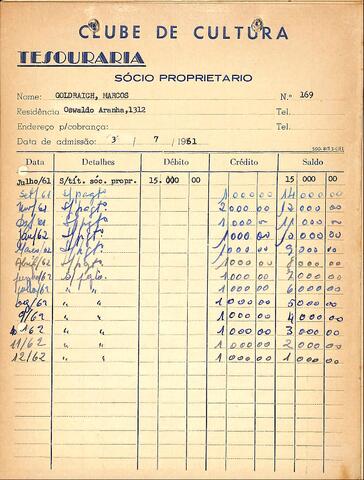 CLUBE DE CULTURA
TESOURARIA
SÓCIO PROPRIETARIO
Nome: GOLDRAICH, MARCOS N.º 169
Residência Oswaldo Aranha, 1312 Tel.
Endereço p/cobrança: Tel.
Data de admissão: 3 / 7 / 1961
Data Detalhes Débito Crédito Saldo
Julho/61 S/tít. sóc. propr. 15.000 00 15 000 00
Set/61 S/pagto 1 000 00 14 000 00
Nov/61 S/pgto 2 000 00 12 000 00
S/pgto 1 000 00 11 000 00
Jan/62 S/pgto. 1 000 00 10 000 00
Março/62 S/pgto. 1 000 00 9 000 00
Abril/62 S/pgto. 1 000 00 8 000 00
Junho/62 S/pgto. 1 000 00 7 000 00
Julho/62 " " 1 000 00 6 000 00
ag/62 " " 1 000 00 5 000 00
9/62 " " 1 000 00 4 000 00
10/62 " " 1 000 00 3 000 00
11/62 " " 1 000 00 2 000 00
12/62 " " 1 000 00 1 000 00